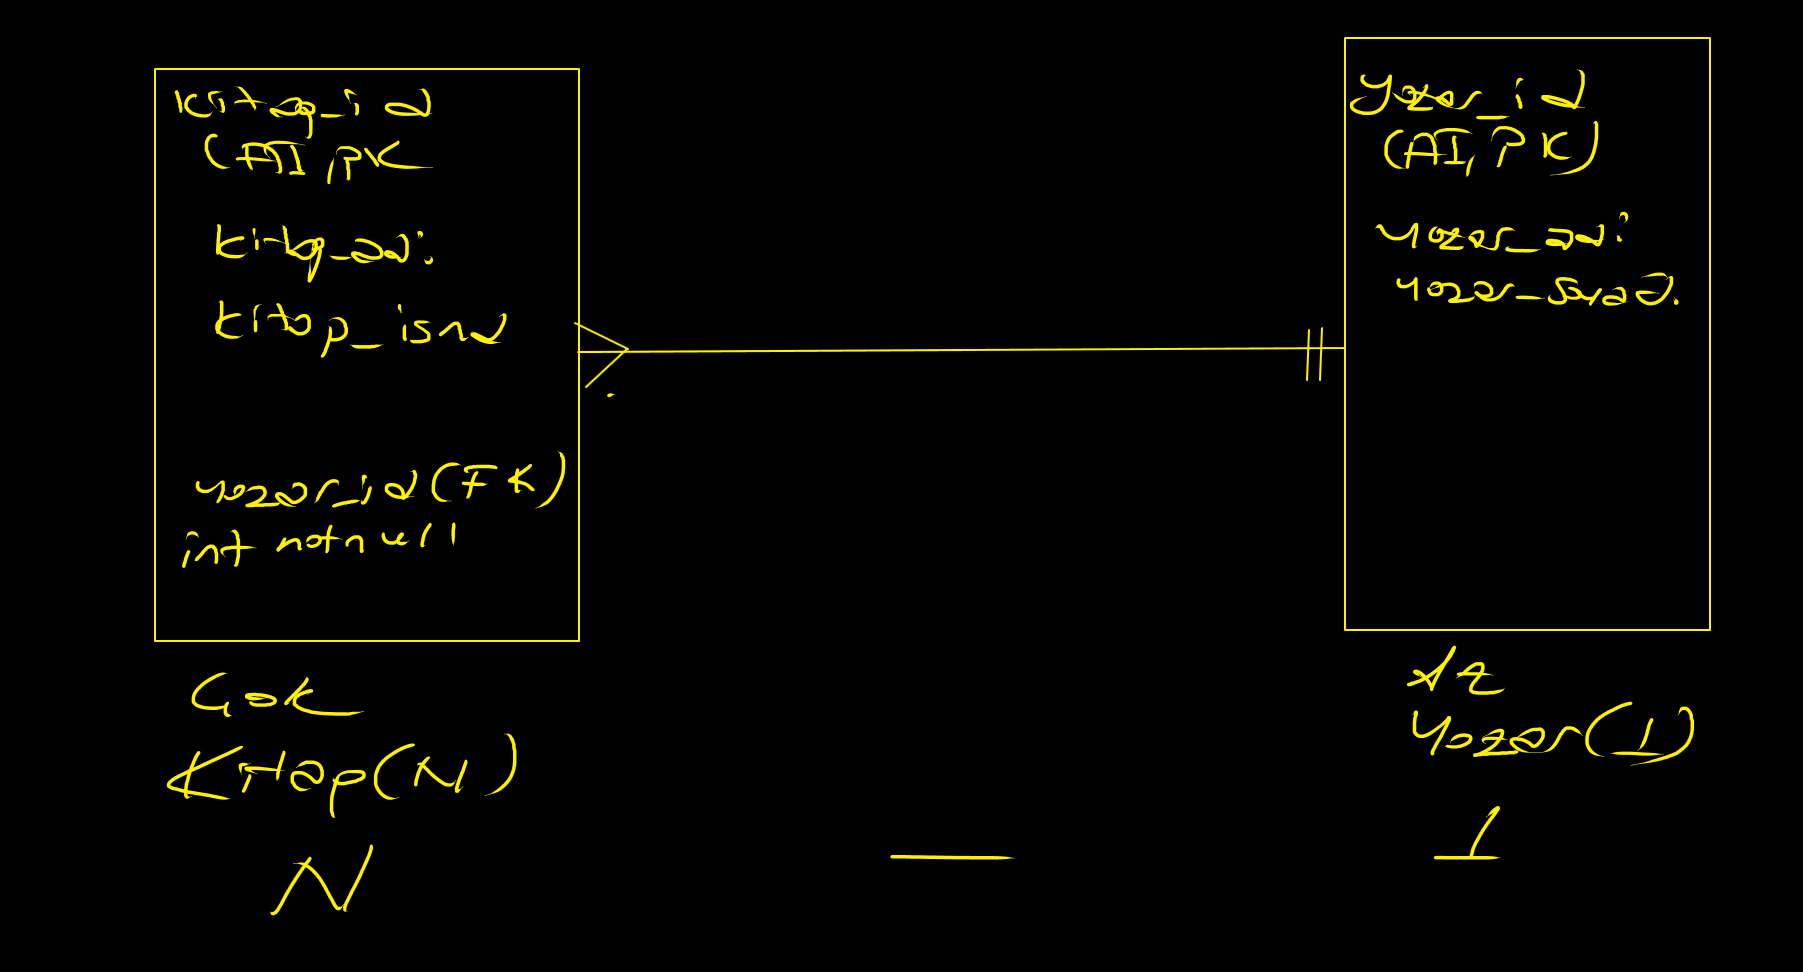 kitap_id
(AI, PK
kitap_adi
kitap_isnd
yazar_id (FK)
int not null
Çok
Kitap(N)
N
yazar_id
(AI, PK)
yazar_adi
yazar_soyadi
Az
Yazar(1)
1